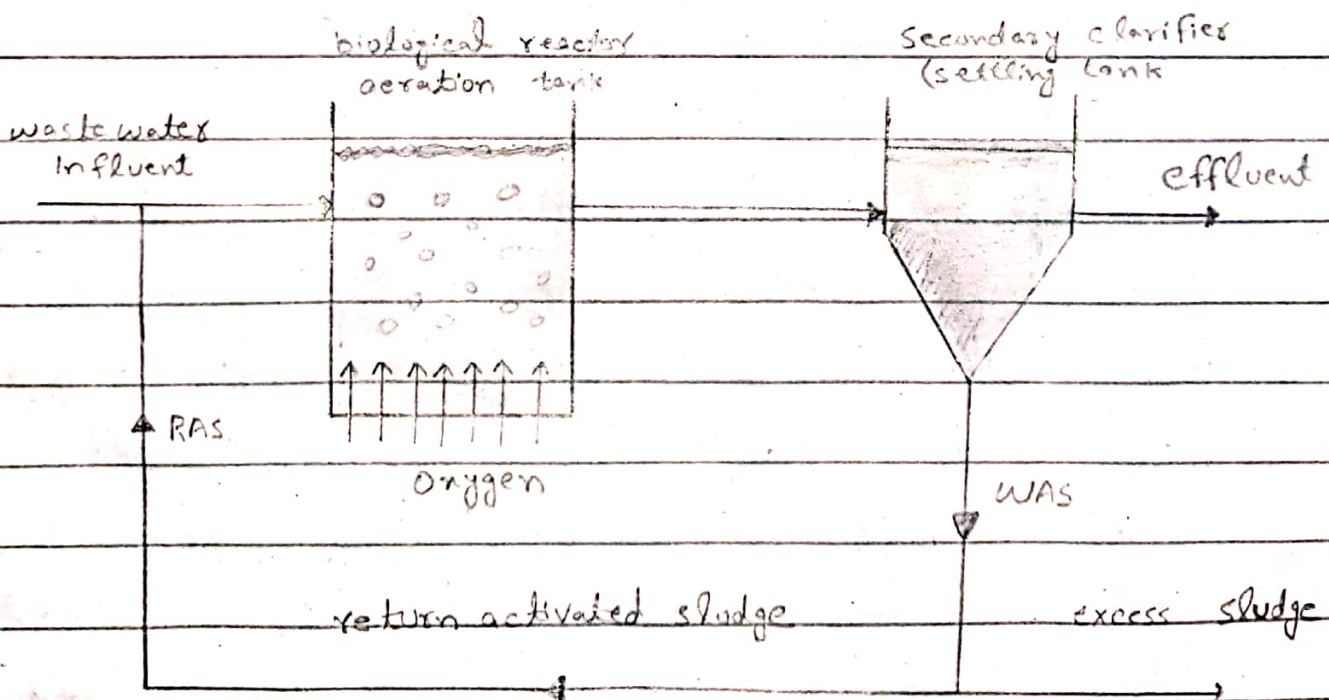 biological reactor
aeration tank
secondary clarifier
(settling tank
wastewater
Influent
effluent
RAS
Oxygen
WAS
return activated sludge
excess sludge